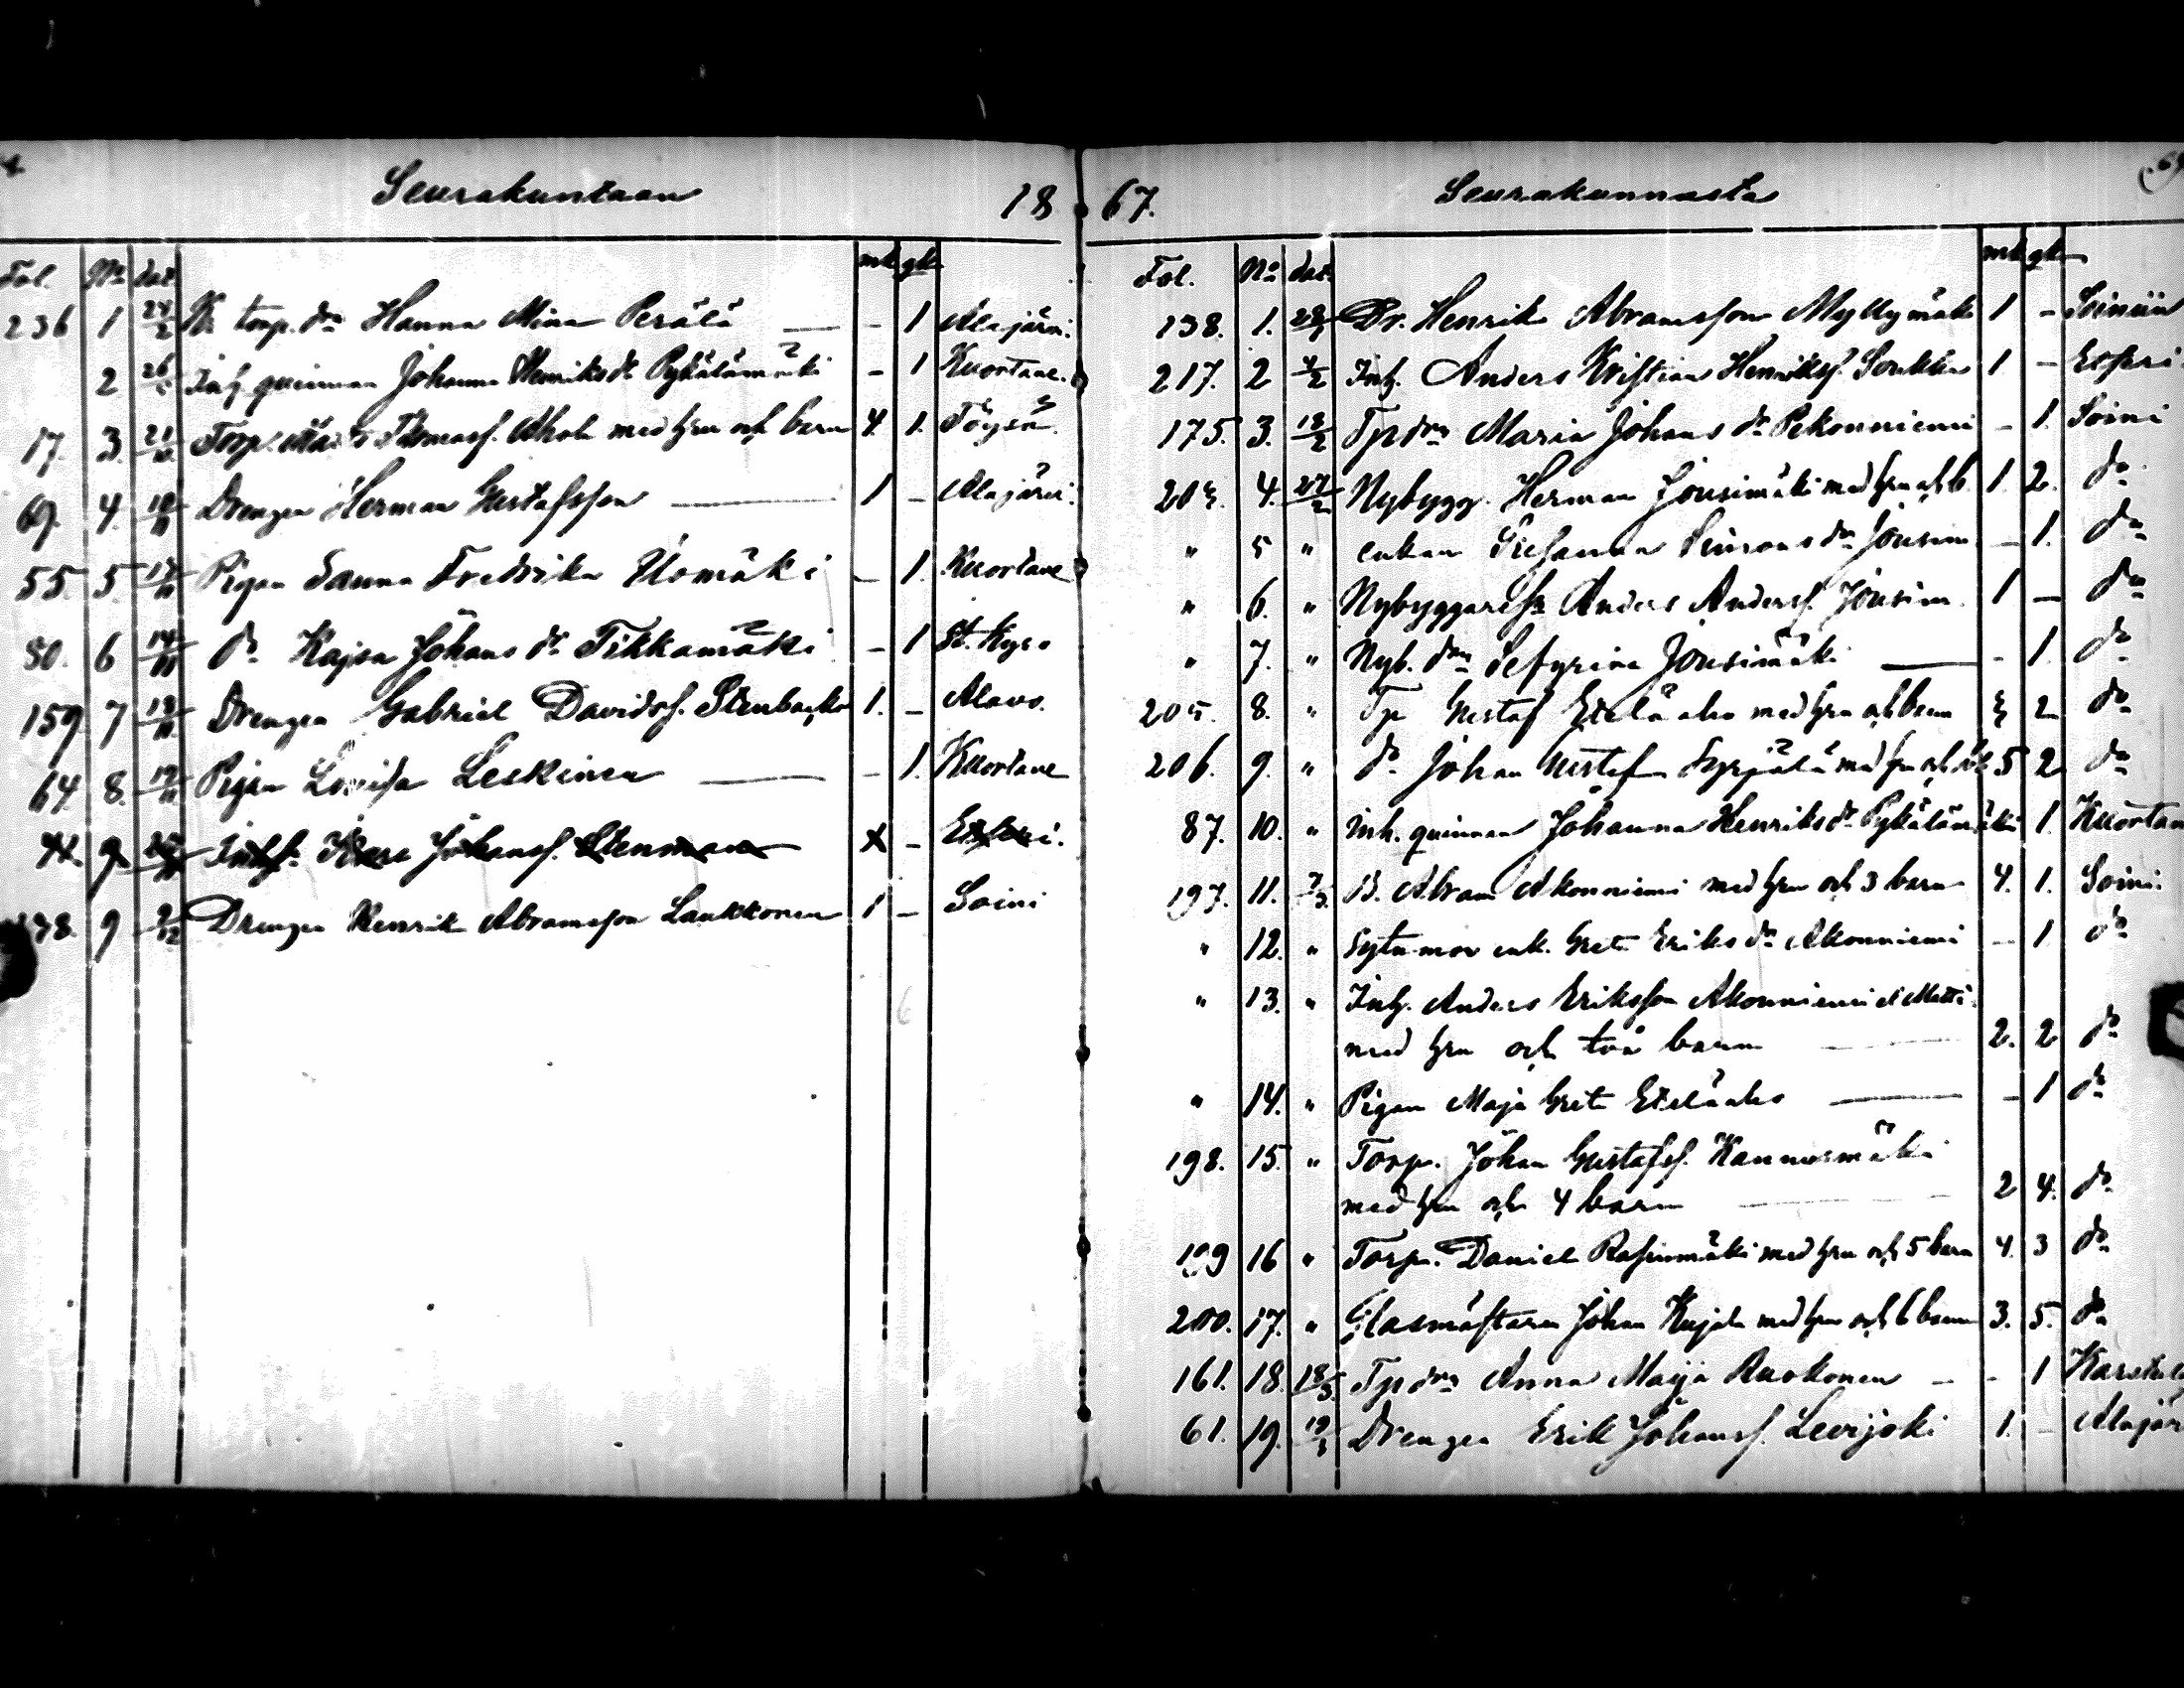 Seurakuntaan 18
Fol. No dat mk qk
236 1 24/2 K. torp. dr Hanna Mina Perälä — - 1 Alajärvi.
2 Inh. quinnan Johanna Henriksdr Pykälämäki - 1 Kuortane.
17. 3. Torp. Thomass. Ahola med hru och barn 4. 1. Töysä
69. 4. Drengen Herman Gustafsson — 1 - Alajärvi.
55. 5 Pigan Sanna Fredrika Uomäki - 1. Kuortane
50. 6 14/11 do Kajsa Johansdr Tikkamäki - 1 St. Kyro
159 7 13/11 Drengen Gabriel Davidss. Stenbacka 1. - Alavo.
64 8. Pigan Lovisa Leskinen — - 1. Kuortane
9 Johanss. Stenman -
9 2/12 Drengen Henrik Abramsson Laukkonen 1 - Soini
67.
Seurakunnasta
Fol. No dat. mk qk
138. 1. Dr. Henrik Abramsson Myllymäki 1 - Soiniin
217. 2 4/2 Inh. Anders Kristian Henrikss. Soukko 1 -
175. 3. 13/2 Tpdr Maria Johansdr Pekonniemi - 1. Soini
4. 27/2 Nybygg. Herman Jousimäki med hru och b. 1. 2. do
" 5 " enkan Susanna Simonsdr Jousim. - 1. do
" 6. " Nybyggaress. Anders Anderss. Jousim. 1 — do
" 7. " Nyb. dr Sefyrina Jousimäki — - 1. do
205. 8. " Tp Gustaf Eteläaho med hru och barn 2 do
206. 9. " do Johan Gustaf Syrjälä med hru och 5 2 do
87. 10. " Inh. quinnan Johanna Henriksdr Pykälämäki 1. Kuortan
197. 11. 7/3. B. Abram Akonniemi med hru och 3 barn 4. 1. Soini
" 12. " Sytn. mor enk. Greta Eriksdr Akonniemi - 1 do
" 13. " Inh. Anders Eriksson Akonniemi
med hru och två barn — 2. 2 do
" 14. " Pigan Maja Greta Eteläaho — - 1 do
198. 15. " Torp. Johan Gustafss. Kannusmäki
med hru och 4 barn — 2 4. do
199 16 " Torp. Daniel Rasinmäki med hru och 5 barn 4. 3 do
200. 17. " Glasmästaren Johan Kujala med hru och 6 barn 3. 5. do
161. 18. 18/3 Tpdr Anna Maija Ruokonen - - 1 Karstula
61. 19. Drengen Erik Johanss. Levijoki 1. - Alajär